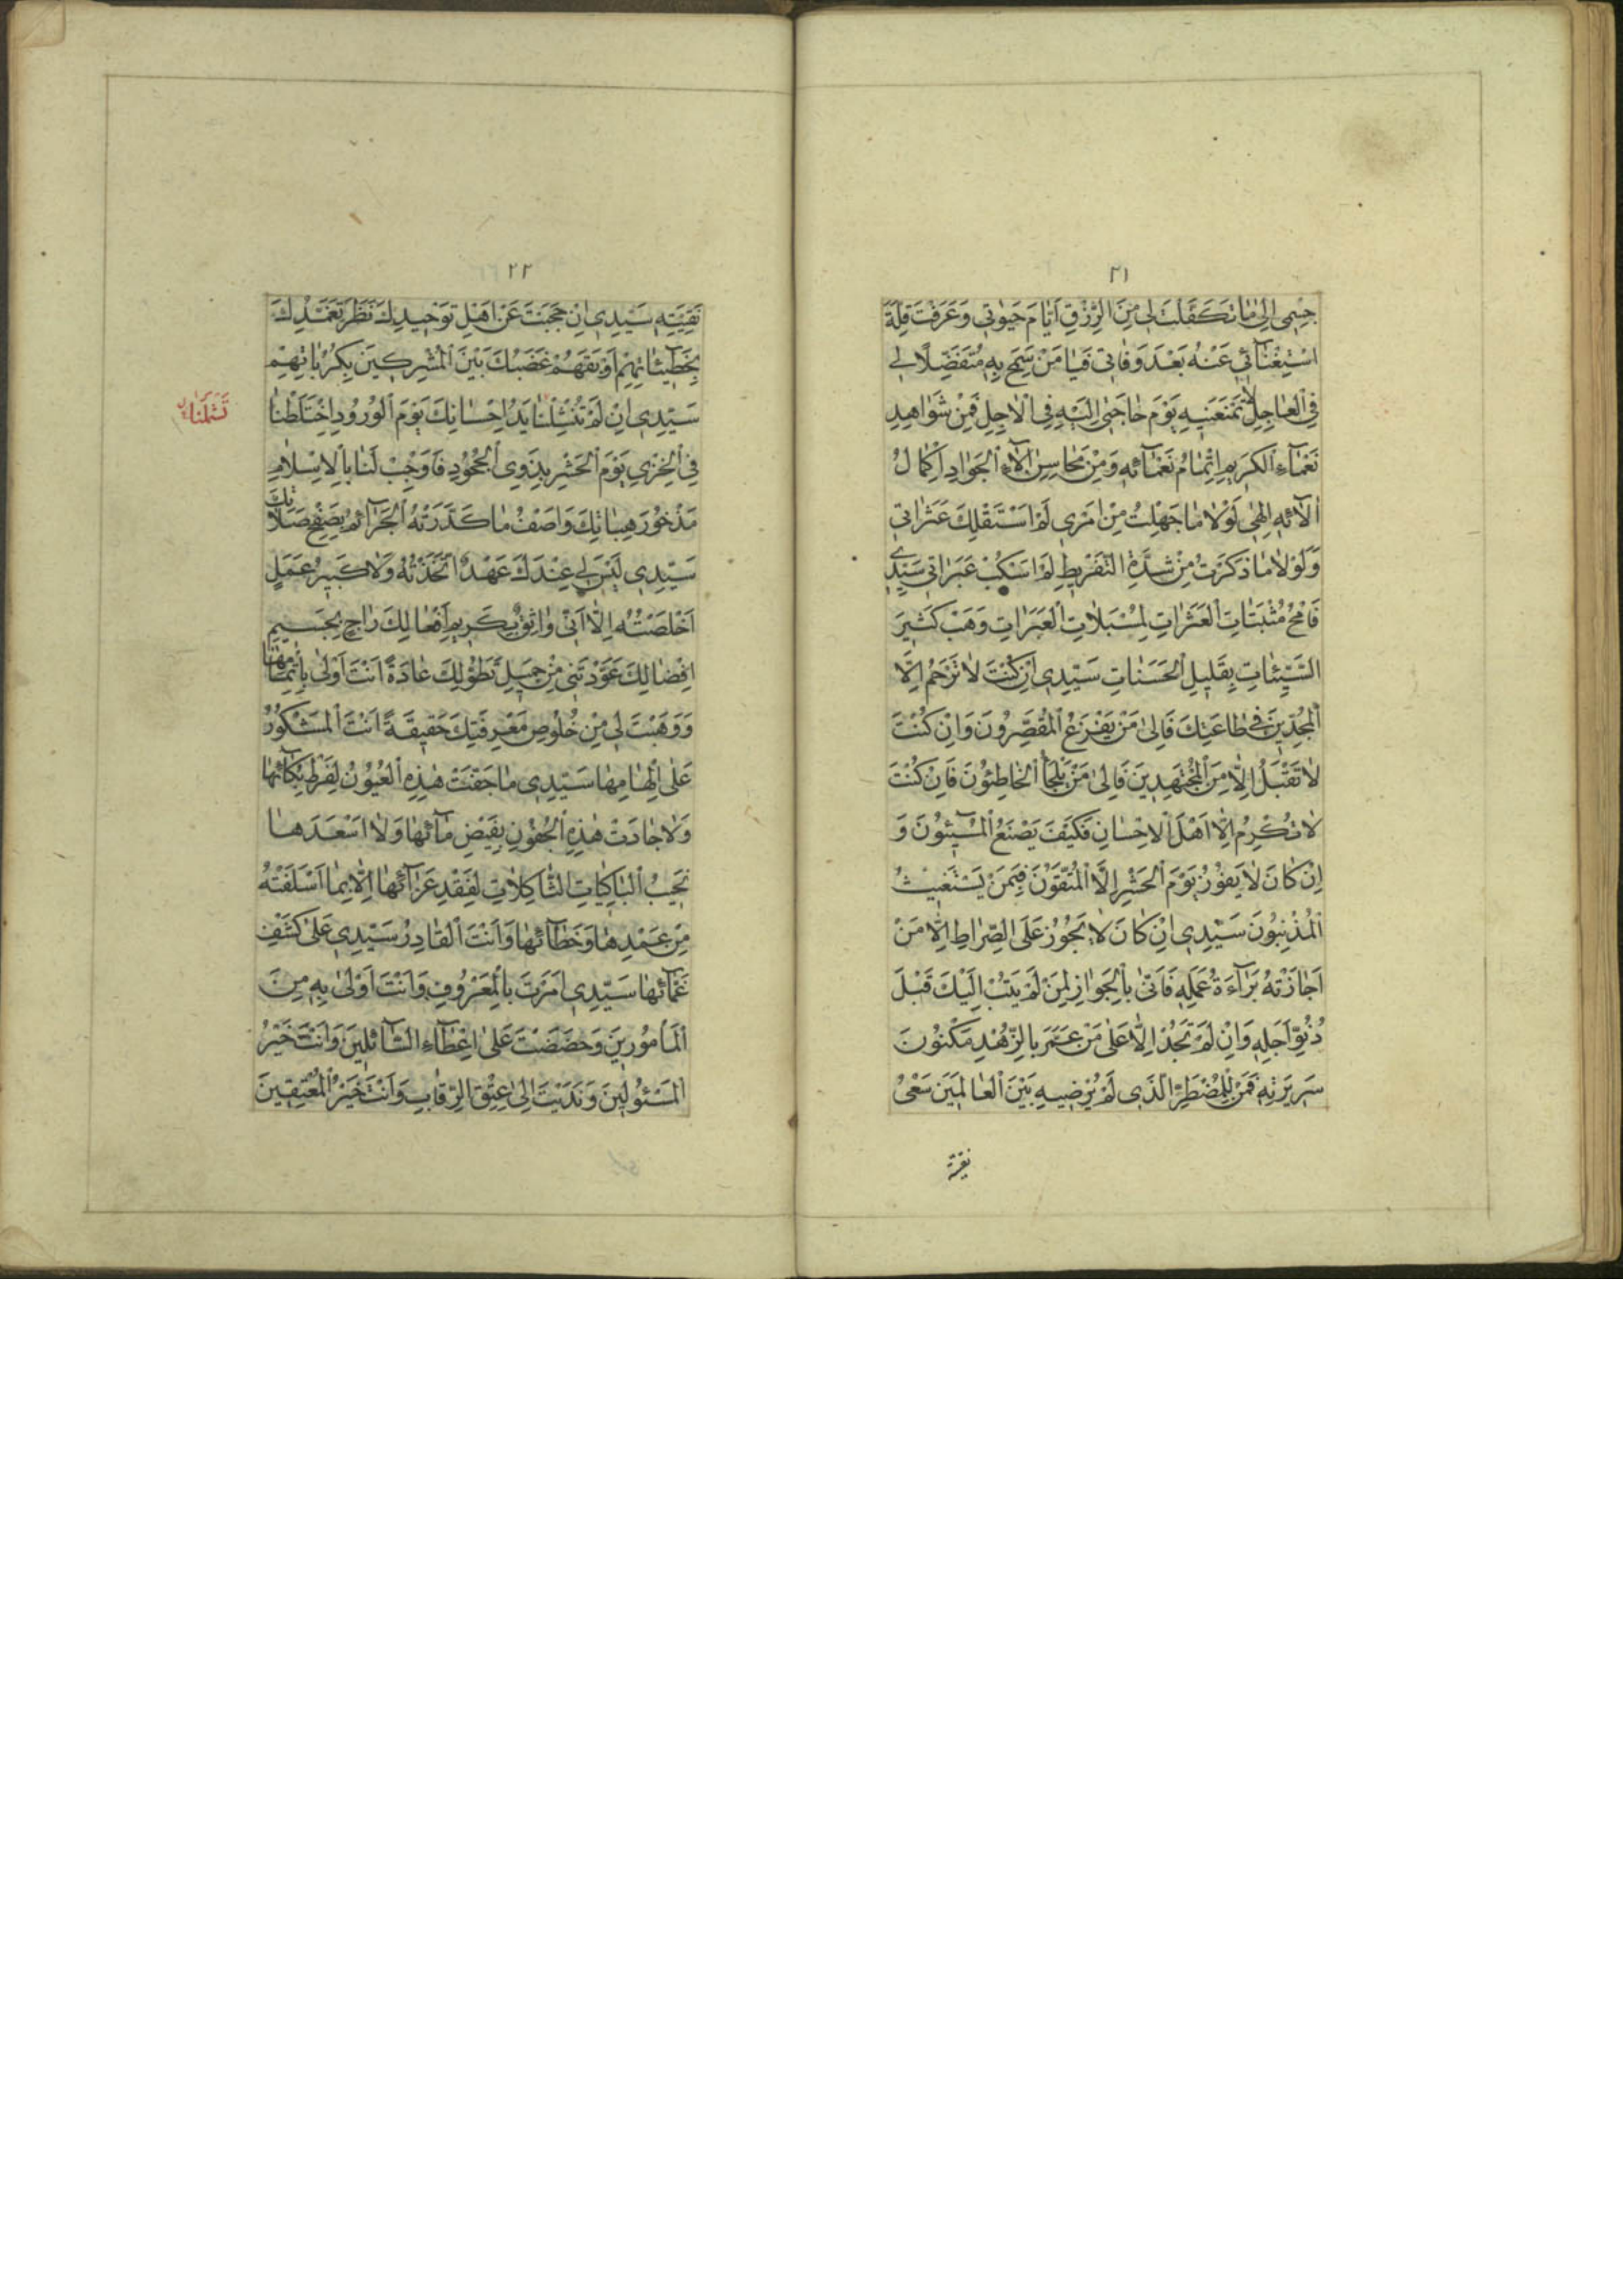 ٢١
جِسْمِي إِلَىٰ مَا تَكَفَّلْتَ لِي مِنَ الرِّزْقِ أَيَّامَ حَيٰوتِي وَعَرَفْتَ قِلَّةَ
اسْتِغْنَآئِي عَنْهُ بَعْدَ وَفَاتِي فَيَا مَنْ سَمَحَ بِهِ مُتَفَضِّلًا لِي
فِي الْعَاجِلِ لَا تَمْنَعَنِيهِ يَوْمَ حَاجَتِي إِلَيْهِ فِي الْاٰجِلِ فَمِنْ شَوَاهِدِ
نَعْمَآءِ الْكَرِيمِ إِتْمَامُ نَعْمَآئِهِ وَمِنْ مَحَاسِنِ اٰلَآءِ الْجَوَادِ إِكْمَالُ
اٰلَآئِهِ إِلٰهِي لَوْلَا مَا جَهِلْتُ مِنْ أَمْرِي لَمْ أَسْتَقِلْكَ عَثَرَاتِي
وَلَوْلَا مَا ذَكَرْتُ مِنْ شِدَّةِ التَّفْرِيطِ لَمْ أَسْكُبْ عَبَرَاتِي سَيِّدِي
فَامْحُ مُثْبَتَاتِ الْعَثَرَاتِ لِمُسْبَلَاتِ الْعَبَرَاتِ وَهَبْ كَثِيرَ
السَّيِّئَاتِ بِقَلِيلِ الْحَسَنَاتِ سَيِّدِي إِنْ كُنْتَ لَا تَرْحَمُ إِلَّا
الْمُجِدِّينَ فِي طَاعَتِكَ فَإِلَىٰ مَنْ يَفْزَعُ الْمُقَصِّرُونَ وَإِنْ كُنْتَ
لَا تَقْبَلُ إِلَّا مِنَ الْمُجْتَهِدِينَ فَإِلَىٰ مَنْ يَلْجَأُ الْخَاطِئُونَ فَإِنْ كُنْتَ
لَا تُكْرِمُ إِلَّا أَهْلَ الْإِحْسَانِ فَكَيْفَ يَصْنَعُ الْمُسِيئُونَ وَ
إِنْ كَانَ لَا يَفُوزُ يَوْمَ الْحَشْرِ إِلَّا الْمُتَّقُونَ فَبِمَنْ يَسْتَغِيثُ
الْمُذْنِبُونَ سَيِّدِي إِنْ كَانَ لَا يَجُوزُ عَلَى الصِّرَاطِ إِلَّا مَنْ
أَجَازَتْهُ بَرَآءَةُ عَمَلِهِ فَأَنَّىٰ بِالْجَوَازِ لِمَنْ لَمْ يَتُبْ إِلَيْكَ قَبْلَ
دُنُوِّ أَجَلِهِ وَإِنْ لَمْ تَجُدْ إِلَّا عَلَىٰ مَنْ عَمَّرَ بِالزُّهْدِ مَكْنُونَ
سَرِيرَتِهِ فَمَنْ لِلْمُضْطَرِّ الَّذِي لَمْ يُرْضِهِ بَيْنَ الْعَالَمِينَ سَعْيُ
نقيته
٢٢
نَقِيَّتِهِ سَيِّدِي إِنْ حَجَبْتَ عَنْ أَهْلِ تَوْحِيدِكَ نَظَرَ تَغَمُّدِكَ
بِخَطِيئَاتِهِمْ أَوْبَقَهُمْ غَضَبُكَ بَيْنَ الْمُشْرِكِينَ بِكُرُبَاتِهِمْ
سَيِّدِي إِنْ لَمْ تَنْتَشِلْنَا يَدُ إِحْسَانِكَ يَوْمَ الْوُرُودِ اخْتَلَطْنَا
تَشْمَلنَا
فِي الْخِزْيِ يَوْمَ الْحَشْرِ بِذَوِي الْجُحُودِ فَأَوْجِبْ لَنَا بِالْإِسْلَامِ
مَذْخُورَ هِبَاتِكَ وَأَصْفِ مَا كَدَّرَتْهُ الْجَرَآئِمُ بِصَفْحِ صَلَاتِكَ
سَيِّدِي لَيْسَ لِي عِنْدَكَ عَهْدٌ اتَّخَذْتُهُ وَلَا كَبِيرُ عَمَلٍ
أَخْلَصْتُهُ إِلَّا أَنِّي وَاثِقٌ بِكَرِيمِ أَفْعَالِكَ رَاجٍ بِجَسِيمِ
إِفْضَالِكَ عَوَّدْتَنِي مِنْ جَمِيلِ تَطَوُّلِكَ عَادَةً أَنْتَ أَوْلَىٰ بِإِتْمَامِهَا
وَوَهَبْتَ لِي مِنْ خُلُوصِ مَعْرِفَتِكَ حَقِيقَةً أَنْتَ الْمَشْكُورُ
عَلَىٰ إِلْهَامِهَا سَيِّدِي مَا جَفَّتْ هٰذِهِ الْعُيُونُ لِفَرْطِ بُكَآئِهَا
وَلَا جَادَتْ هٰذِهِ الْجُفُونُ بِفَيْضِ مَآئِهَا وَلَا أَسْعَدَهَا
نَحِيبُ الْبَاكِيَاتِ الثَّاكِلَاتِ لِفَقْدِ عَزَآئِهَا إِلَّا بِمَا أَسْلَفَتْهُ
مِنْ عَمْدِهَا وَخَطَآئِهَا وَأَنْتَ الْقَادِرُ سَيِّدِي عَلَىٰ كَشْفِ
غَمَّآئِهَا سَيِّدِي أَمَرْتَ بِالْمَعْرُوفِ وَأَنْتَ أَوْلَىٰ بِهِ مِنَ
الْمَأْمُورِينَ وَحَضَضْتَ عَلَىٰ إِعْطَآءِ السَّآئِلِينَ وَأَنْتَ خَيْرُ
الْمَسْئُولِينَ وَنَدَبْتَ إِلَىٰ عِتْقِ الرِّقَابِ وَأَنْتَ خَيْرُ الْمُعْتِقِينَ